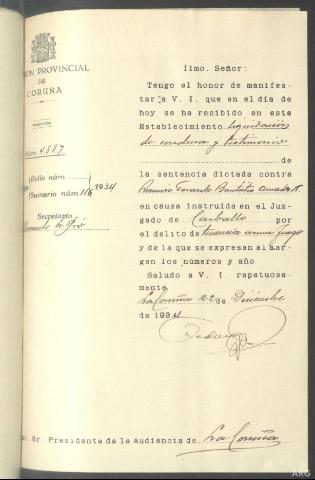 ION PROVINCIAL
DE
CORUÑA
Núm. 4887
Rollo núm.
Sumario núm. 116 1934
Secretario
Ilmo. Señor:
Tengo el honor de manifes-
tar a V. I. que en el día de
hoy se ha recibido en este
Establecimiento liquidación
de condena y testimonio
de
la sentencia dictada contra
en causa instruída en el Juz-
gado de Carballo por
el delito de tenencia arma fuego
y de la que se expresan al mar-
gen los números y año
Saludo a V. I. repetuosa-
mente.
La Coruña 22 de Diciembre
de 1934.
mo. Sr: Presidente de la Audiencia de La Coruña
ARG